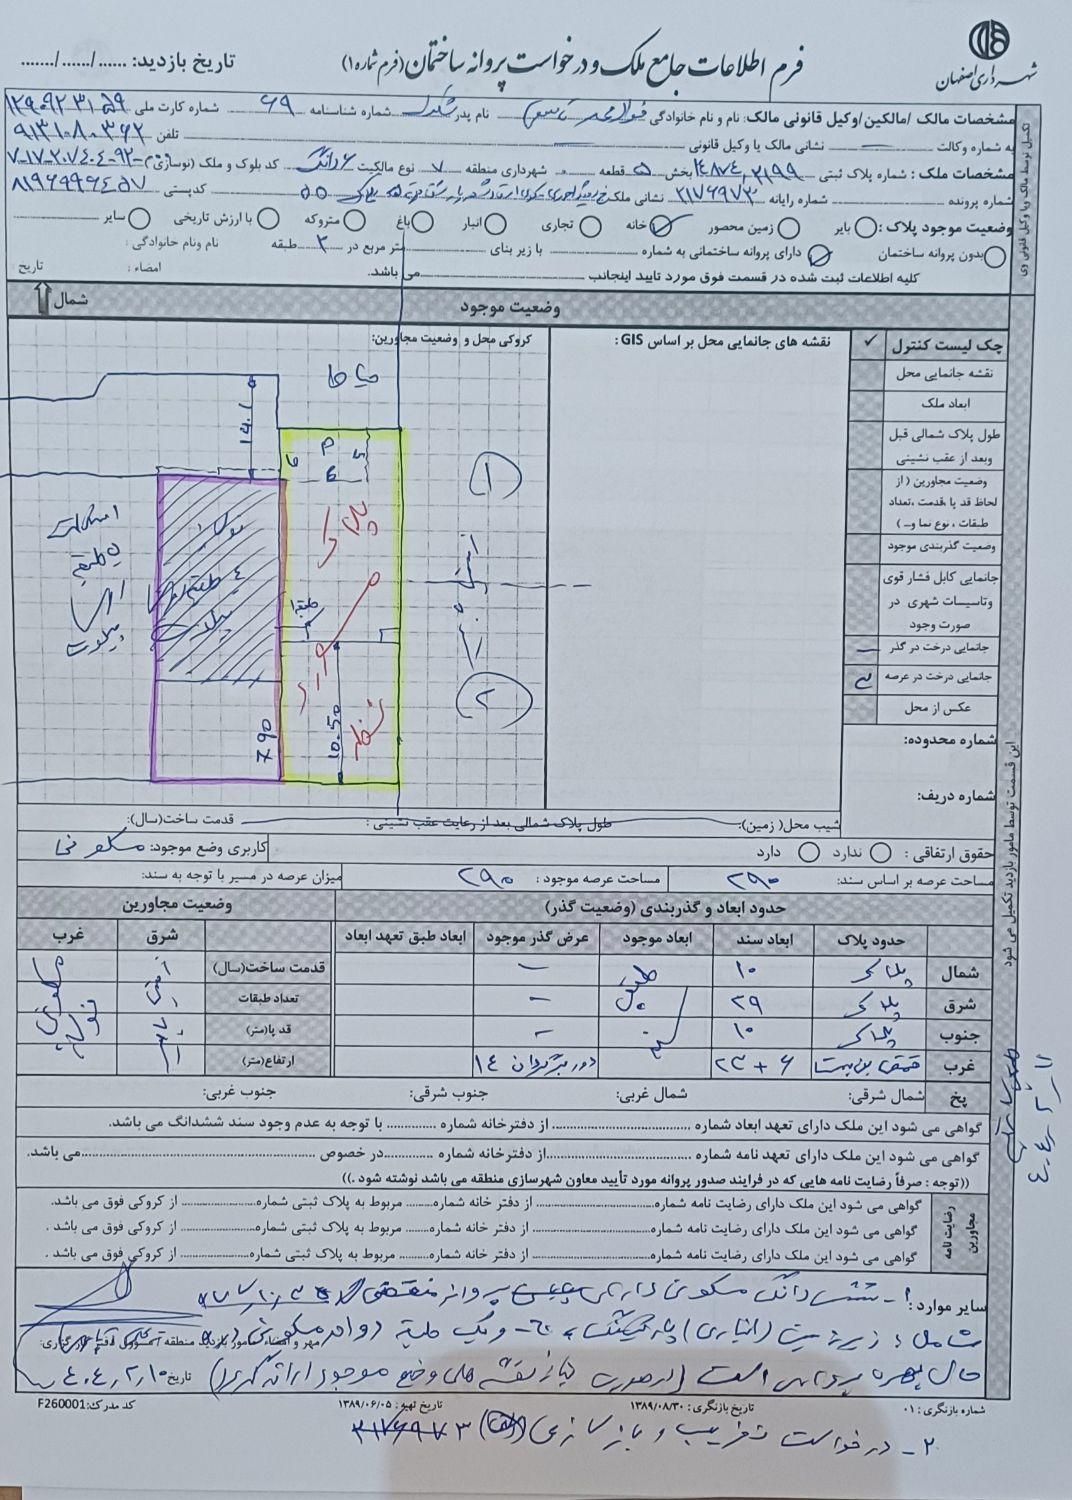 شهرداری اصفهان
فرم اطلاعات جامع ملک و درخواست پروانه ساختمان (فرم شماره ۱)
تاریخ بازدید: ....../....../.......
تکمیل توسط مالک ویا وکیل قانونی وی
مشخصات مالک /مالکین/وکیل قانونی مالک: نام و نام خانوادگی نام پدر شماره شناسنامه ۶۹ شماره کارت ملی
به شماره وکالت نشانی مالک یا وکیل قانونی تلفن ۹۱۳۱۰۸۰۳۶۲
مشخصات ملک : شماره پلاک ثبتی بخش ۵ قطعه - شهرداری منطقه ۷ نوع مالکیت ۶دانگ کد بلوک و ملک (نوسازی)
شماره پرونده شماره رایانه ۳۱۷۶۹۷۳ نشانی ملک کدپستی
وضعیت موجود پلاک : بایر زمین محصور خانه تجاری انبار باغ متروکه با ارزش تاریخی سایر
بدون پروانه ساختمان دارای پروانه ساختمانی به شماره با زیر بنای متر مربع در ۲ طبقه نام ونام خانوادگی :
کلیه اطلاعات ثبت شده در قسمت فوق مورد تایید اینجانب می باشد. امضاء : تاریخ :
وضعیت موجود
شمال
چک لیست کنترل ✓
نقشه جانمایی محل
ابعاد ملک
طول پلاک شمالی قبل
وبعد از عقب نشینی
وضعیت مجاورین ( از
لحاظ قد پا ،قدمت ،تعداد
طبقات ، نوع نما و... )
وضعیت گذربندی موجود
جانمایی کابل فشار قوی
وتاسیسات شهری در
صورت وجود
جانمایی درخت در گذر
جانمایی درخت در عرصه
عکس از محل
شماره محدوده:
شماره دریف:
نقشه های جانمایی محل بر اساس GIS :
کروکی محل و وضعیت مجاورین:
حیاط
14.1
P
6
5
پلاک
مورد
نظر
۱
۲
طبقه
10.50
7.90
پیلوت
این قسمت توسط مامور بازدید تکمیل می شود
شیب محل( زمین): طول پلاک شمالی بعد از رعایت عقب نشینی : قدمت ساخت(سال):
حقوق ارتفاقی : ندارد دارد کاربری وضع موجود: مسکونی
مساحت عرصه بر اساس سند: ۲۹۰ مساحت عرصه موجود : ۲۹۰ میزان عرصه در مسیر با توجه به سند:
حدود ابعاد و گذربندی (وضعیت گذر) وضعیت مجاورین
حدود پلاک ابعاد سند ابعاد موجود عرض گذر موجود ابعاد طبق تعهد ابعاد شرق غرب
شمال پلاک ۱۰ طبق - قدمت ساخت(سال)
شرق پلاک ۲۹ - تعداد طبقات
جنوب پلاک ۱۰ سند - قد پا(متر)
غرب بن بست ۶ + ۲۳ دور برگردان ۱۴ ارتفاع(متر)
پخ شمال شرقی: شمال غربی: جنوب شرقی: جنوب غربی:
گواهی می شود این ملک دارای تعهد ابعاد شماره .................... از دفترخانه شماره ............ با توجه به عدم وجود سند ششدانگ می باشد.
گواهی می شود این ملک دارای تعهد نامه شماره ....................از دفترخانه شماره ............در خصوص ....................می باشد.
((توجه : صرفاً رضایت نامه هایی که در فرایند صدور پروانه مورد تأیید معاون شهرسازی منطقه می باشد نوشته شود .))
رضایت نامه مجاورین
گواهی می شود این ملک دارای رضایت نامه شماره.................... از دفتر خانه شماره....... مربوط به پلاک ثبتی شماره............... از کروکی فوق می باشد.
گواهی می شود این ملک دارای رضایت نامه شماره .................... از دفتر خانه شماره....... مربوط به پلاک ثبتی شماره............... از کروکی فوق می باشد .
گواهی می شود این ملک دارای رضایت نامه شماره .................... از دفتر خانه شماره....... مربوط به پلاک ثبتی شماره............... از کروکی فوق می باشد .
سایر موارد : ۱- ششدانگ مسکونی دارای پروانه
شامل : زیرزمین (انباری) پارکینگ و یک طبقه دو واحد مسکونی در
مهر و امضاء مامور بازدید منطقه / مسئول دفتر کارگزاری:
حال بهره برداری است (در صورت نیاز نقشه های وضع موجود ارائه گردد) تاریخ ۴۰۴,۲,۱۰
شماره بازنگری : ۰۱ تاریخ بازنگری : ۱۳۸۹/۰۸/۳۰ تاریخ تهیه : ۱۳۸۹/۰۶/۰۵ کد مدرک:F260001
۲- درخواست تخریب و بازسازی ۳۱۷۶۹۷۳